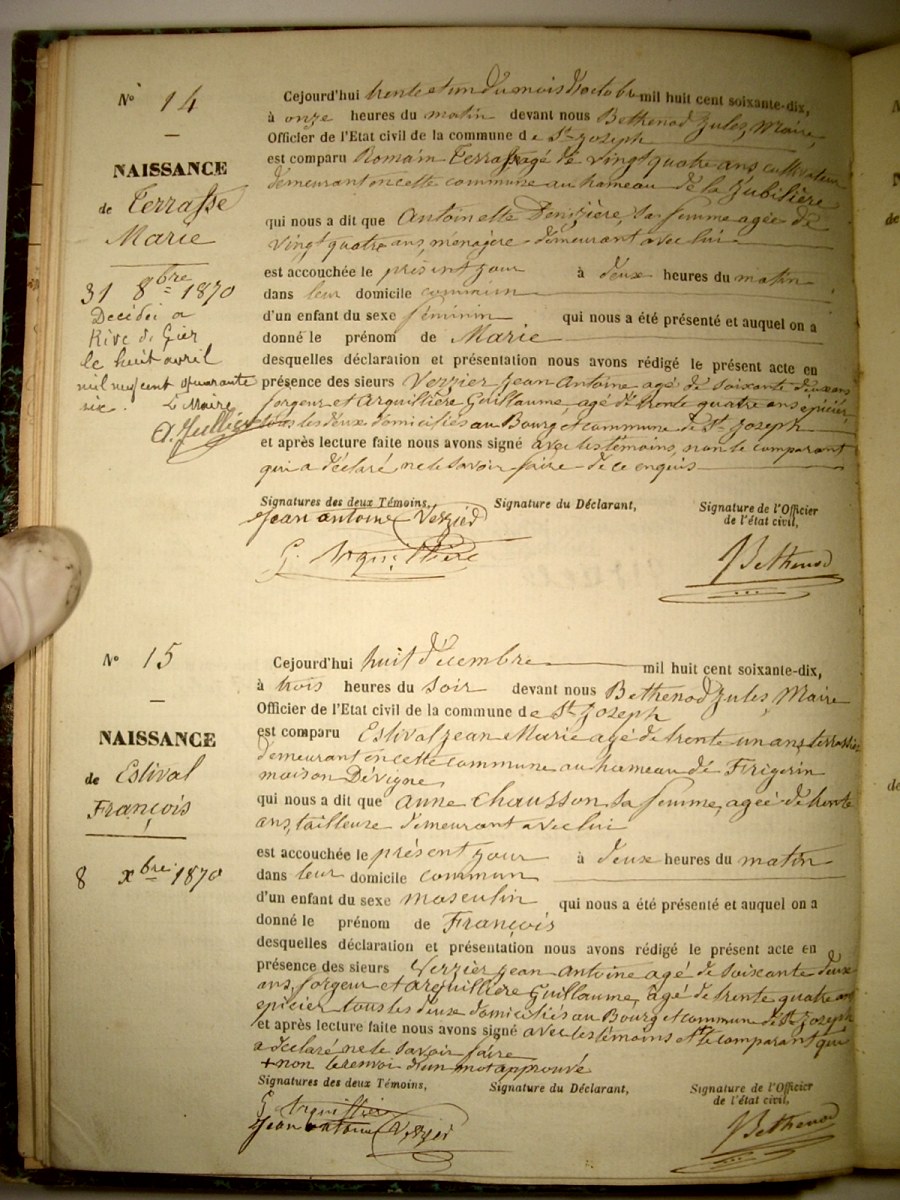 N° 14
NAISSANCE
de Terrasse
Marie
31 8bre 1870
Décédée a
Rive de Gier
le huit avril
mil neuf cent quarante
six. Le Maire
Cejourd'hui trente et un du mois d'octobre mil huit cent soixante-dix,
à onze heures du matin devant nous Bethenod Jules, Maire,
Officier de l'Etat civil de la commune de St Joseph
est comparu Romain Terrasse agé de vingt quatre ans cultivateur
demeurant en cette commune au hameau de la Jubilière
qui nous a dit que Antoinette sa femme agée de
vingt quatre ans, menagère demeurant avec lui
est accouchée le présent jour à deux heures du matin
dans leur domicile commun
d'un enfant du sexe féminin qui nous a été présenté et auquel on a
donné le prénom de Marie
desquelles déclaration et présentation nous avons rédigé le présent acte en
présence des sieurs Verzier Jean Antoine agé de soixante deux ans
forgeur et Arquillière Guillaume, agé de trente quatre ans épicier,
tous les deux domiciliés au Bourg et commune de St Joseph
et après lecture faite nous avons signé avec les témoins, non le comparant
qui a déclaré ne le savoir faire de ce enquis
Signatures des deux Témoins, Signature du Déclarant, Signature de l'Officier
de l'état civil,
Jean antoine Verzier
G. Arquillière
JBethenod
N° 15
NAISSANCE
de Estival
François
8 xbre 1870
Cejourd'hui huit décembre mil huit cent soixante-dix,
à trois heures du soir devant nous Bethenod Jules, Maire
Officier de l'Etat civil de la commune de St Joseph
est comparu Estival Jean Marie agé de trente un ans,
demeurant en cette commune au hameau de Frigerin
maison Dévigne
qui nous a dit que Anne Chausson, sa femme, agée de trente
ans, tailleuse demeurant avec lui
est accouchée le présent jour à deux heures du matin
dans leur domicile commun
d'un enfant du sexe masculin qui nous a été présenté et auquel on a
donné le prénom de François
desquelles déclaration et présentation nous avons rédigé le présent acte en
présence des sieurs Verzier Jean Antoine agé de soixante deux
ans, forgeur et Arquillière Guillaume, agé de trente quatre ans
epicier tous les deux domiciliés au Bourg et commun de St Joseph
et après lecture faite nous avons signé avec les témoins et + le comparant qui
a déclaré ne le savoir faire
+ non le renvoi d'un mot approuvé
Signatures des deux Témoins, Signature du Déclarant, Signature de l'Officier
de l'état civil,
G Arquillière
Jean antoine Verzier
JBethenod